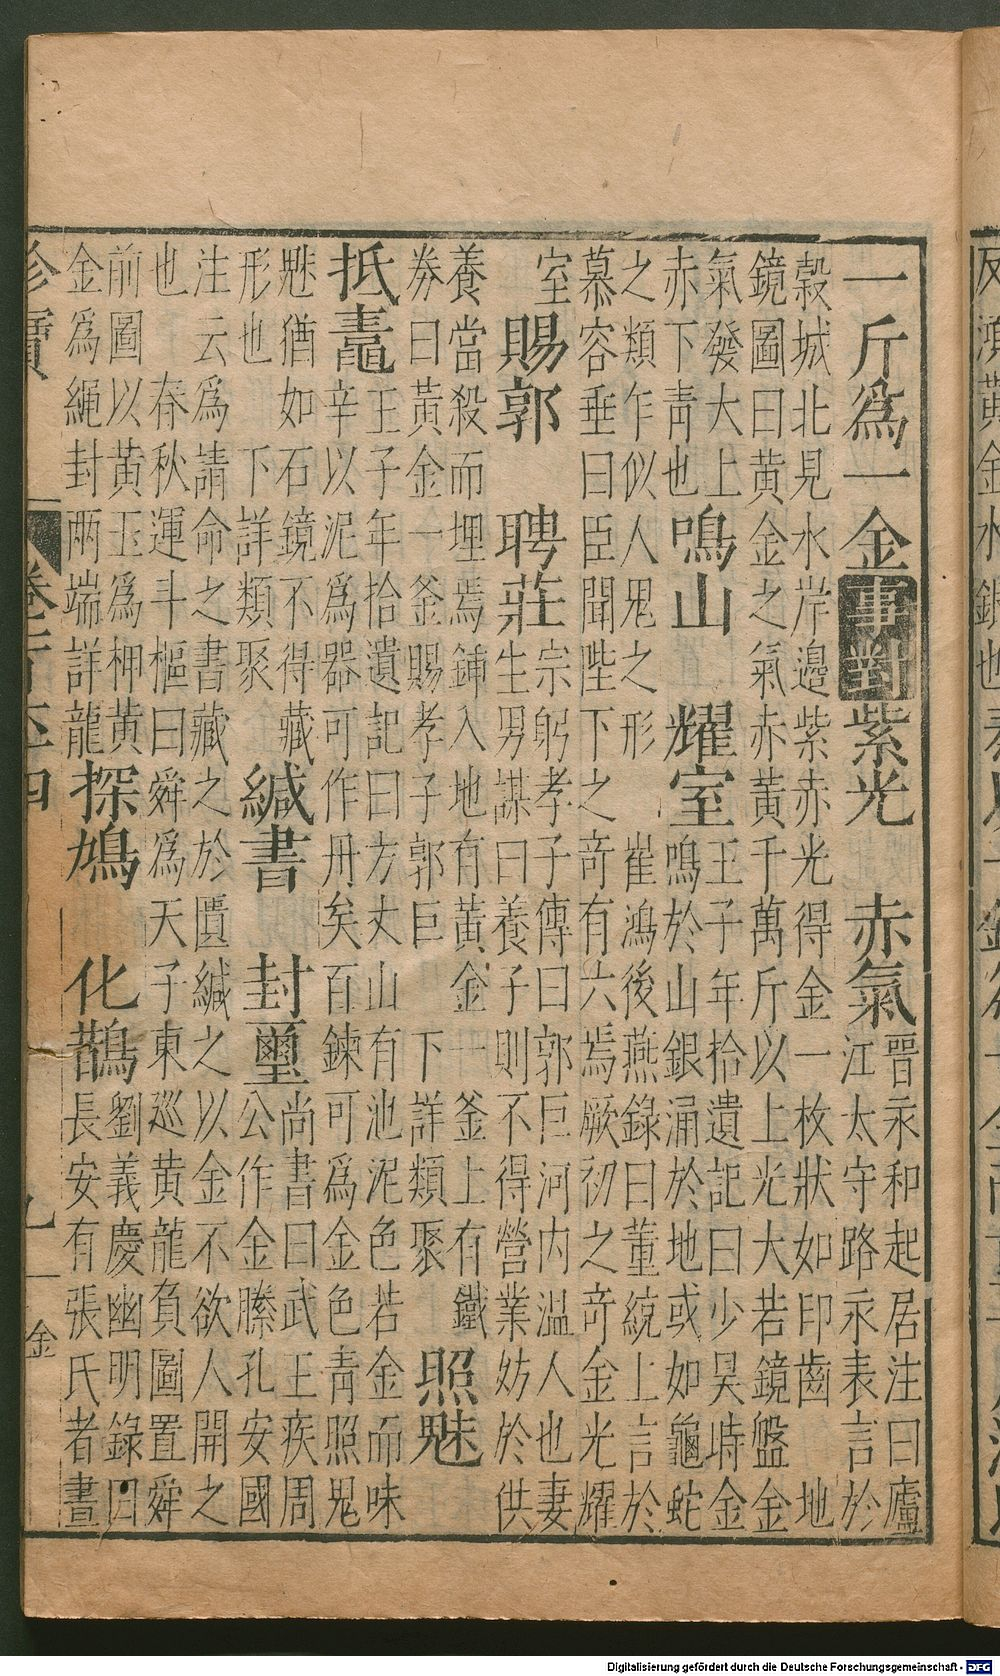 一斤爲一金事對紫光 赤氣
晉永和起居注曰廬
江太守路永表言於
榖城北見水岸邊紫赤光得金一枚狀如印齒 地
鏡圖曰黃金之氣赤黃千萬斤以上光大若鏡盤金
氣發大上
赤下青也
鳴山 耀室
王子年拾遺記曰少昊時金
鳴於山銀涌於地或如龜蛇
之類乍似人鬼之形 崔鴻後燕錄曰董統上言於
慕容垂曰臣聞陛下之竒有六焉厥初之竒金光耀
室
賜郭 聘莊
宗躬孝子傳曰郭巨河内溫人也妻
生男謀曰養子則不得營業妨於供
養當殺而埋焉鍤入地有黃金一釜上有鐵
券曰黃金一釜賜孝子郭巨 下詳類聚
照魅
抵鼃
王子年拾遺記曰方丈山有池泥色若金而味
辛以泥爲器可作舟矣百鍊可爲金色青照鬼
魅猶如石鏡不得藏
形也 下詳類聚
緘書 封璽
尚書曰武王疾周
公作金縢孔安國
注云爲請命之書藏之於匱緘之以金不欲人開之
也 春秋運斗樞曰舜爲天子東巡黃龍負圖置舜
前圖以黃玉爲柙黃
金爲繩封兩端詳龍
探鳩 化鵲
劉義慶幽明錄曰
長安有張氏者晝
珍寶
金
Digitalisierung gefördert durch die Deutsche Forschungsgemeinschaft - DFG